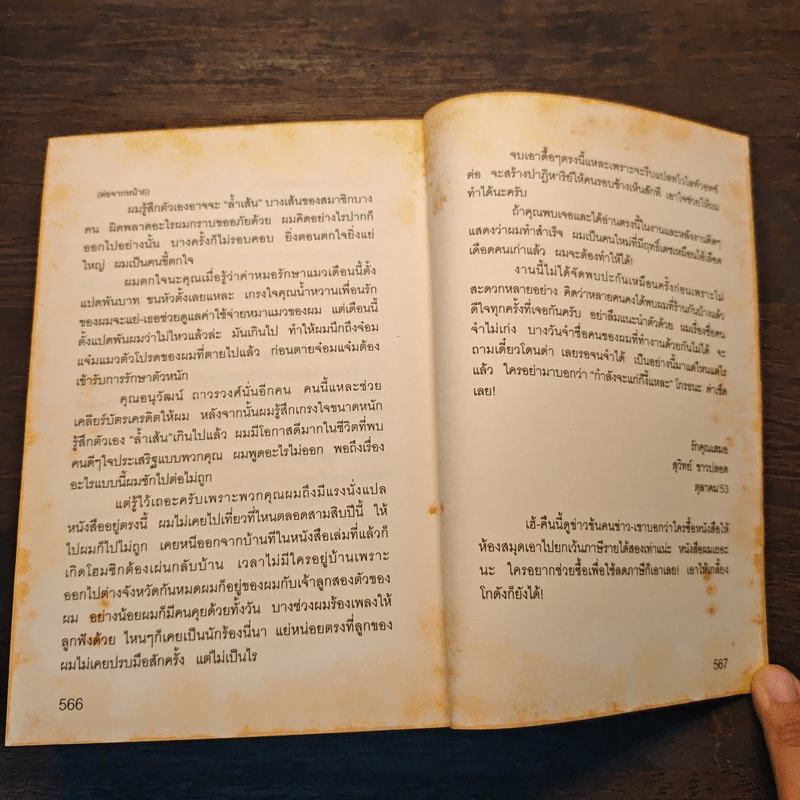 (ต่อจากหน้า6)
ผมรู้สึกตัวเองอาจจะ "ล้ำเส้น" บางเส้นของสมาชิกบาง
คน ผิดพลาดอะไรผมกราบขออภัยด้วย ผมคิดอย่างไรปากก็
ออกไปอย่างนั้น บางครั้งก็ไม่รอบคอบ ยิ่งตอนตกใจยิ่งแย่
ใหญ่ ผมเป็นคนขี้ตกใจ
ผมตกใจนะคุณเมื่อรู้ว่าค่าหมอรักษาแมวเดือนนี้ตั้ง
แปดพันบาท ขนหัวตั้งเลยแหละ เกรงใจคุณน้ำหวานเพื่อนรัก
ของผมจะแย่-เธอช่วยดูแลค่าใช้จ่ายหมาแมวของผม แต่เดือนนี้
ตั้งแปดพันผมว่าไม่ไหวแล้วล่ะ มันเกินไป ทำให้ผมนึกถึงจ๋อม
แจ๋มแมวตัวโปรดของผมที่ตายไปแล้ว ก่อนตายจ๋อมแจ๋มต้อง
เข้ารับการรักษาตัวหนัก
คุณอนุวัฒน์ ถาวรวงศ์นั่นอีกคน คนนี้แหละช่วย
เคลียร์บัตรเครดิตให้ผม หลังจากนั้นผมรู้สึกเกรงใจขนาดหนัก
รู้สึกตัวเอง "ล้ำเส้น"เกินไปแล้ว ผมมีโอกาสดีมากในชีวิตที่พบ
คนดีๆใจประเสริฐแบบพวกคุณ ผมพูดอะไรไม่ออก พอถึงเรื่อง
อะไรแบบนี้ผมชักไปต่อไม่ถูก
แต่รู้ไว้เถอะครับเพราะพวกคุณผมถึงมีแรงนั่งแปล
หนังสืออยู่ตรงนี้ ผมไม่เคยไปเที่ยวที่ไหนตลอดสามสิบปีนี้ ให้
ไปผมก็ไปไม่ถูก เคยหนีออกจากบ้านทีในหนังสือเล่มที่แล้วก็
เกิดโฮมซิกต้องเผ่นกลับบ้าน เวลาไม่มีใครอยู่บ้านเพราะ
ออกไปต่างจังหวัดกันหมดผมก็อยู่ของผมกับเจ้าลูกสองตัวของ
ผม อย่างน้อยผมก็มีคนคุยด้วยทั้งวัน บางช่วงผมร้องเพลงให้
ลูกฟังด้วย ไหนๆก็เคยเป็นนักร้องนี่นา แย่หน่อยตรงที่ลูกของ
ผมไม่เคยปรบมือสักครั้ง แต่ไม่เป็นไร
566
จบเอาดื้อๆตรงนี้แหละเพราะจะรีบแปลทไวไลท์วอทช์
ต่อ จะสร้างปาฏิหาริย์ให้คนรอบข้างเห็นสักที เอาใจช่วยให้ผม
ทำได้นะครับ
ถ้าคุณพบเจอและได้อ่านตรงนี้ในงานและหลังงานติดๆ
แสดงว่าผมทำสำเร็จ ผมเป็นคนใหม่ที่มีฤทธิ์เดชเหมือนไอ้เลือด
เดือดคนเก่าแล้ว ผมจะต้องทำให้ได้!
งานนี้ไม่ได้จัดพบปะกันเหมือนครั้งก่อนเพราะไม่
สะดวกหลายอย่าง คิดว่าหลายคนคงได้พบผมที่ร้านกันบ้างแล้ว
ดีใจทุกครั้งที่เจอกันครับ อย่าลืมแนะนำตัวด้วย ผมเรื่องชื่อคน
จำไม่เก่ง บางวันจำชื่อคนของผมที่ทำงานด้วยกันไม่ได้ จะ
ถามเดี๋ยวโดนด่า เลยรอจนจำได้ เป็นอย่างนี้มาแต่ไหนแต่ไร
แล้ว ใครอย่ามาบอกว่า "กำลังจะแก่กี้งี้แหละ" โกรธนะ ด่าเช็ด
เลย!
รักคุณเสมอ
สุวิทย์ ขาวปลอด
ตุลาคม'53
เฮ้-คืนนี้ดูข่าวข้นคนข่าว-เขาบอกว่าใครซื้อหนังสือให้
ห้องสมุดเอาไปยกเว้นภาษีรายได้สองเท่าแน่ะ หนังสือผมเยอะ
นะ ใครอยากช่วยซื้อเพื่อใช้ลดภาษีก็เอาเลย! เอาให้เกลี้ยง
โกดังก็ยังได้!
567